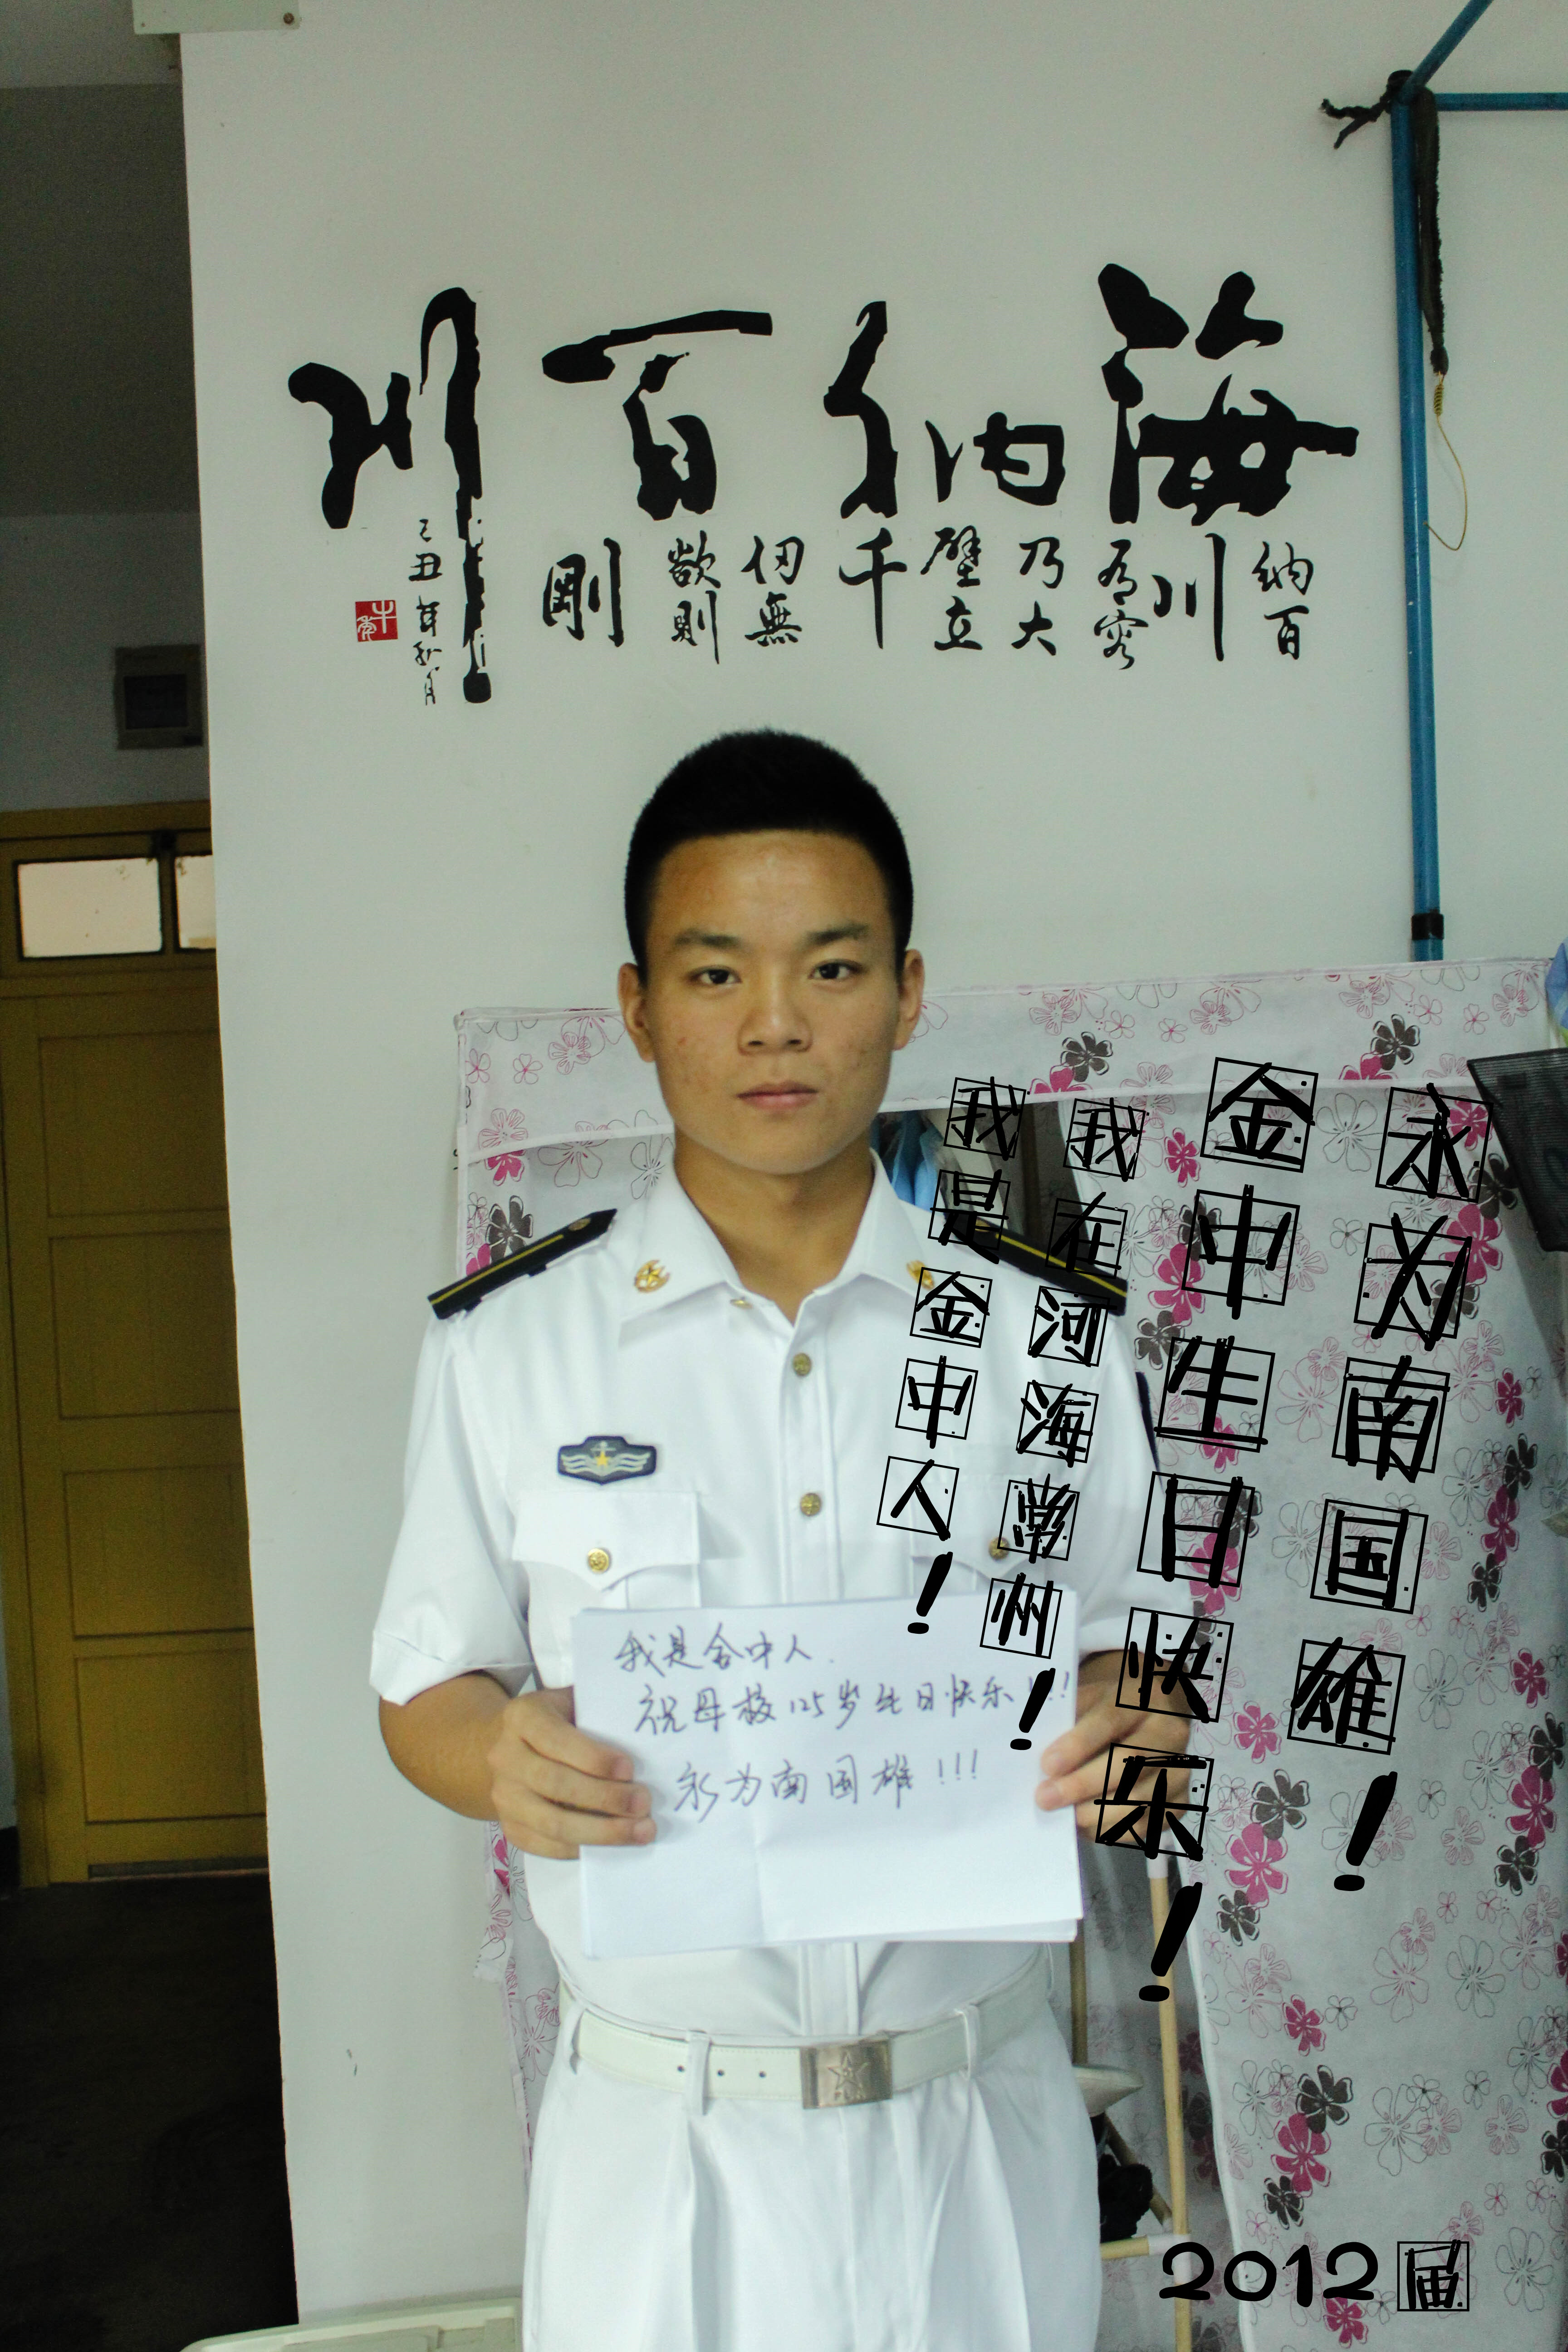 海纳百川
纳百
川
有容
乃大
壁立
千
仞無
欲則
剛
己丑年秋月
永为南国雄！
金中生日快乐！
我在河海常州！
我是金中人！
我是金中人.
祝母校125岁生日快乐!!!
永为南国雄!!!
2012届